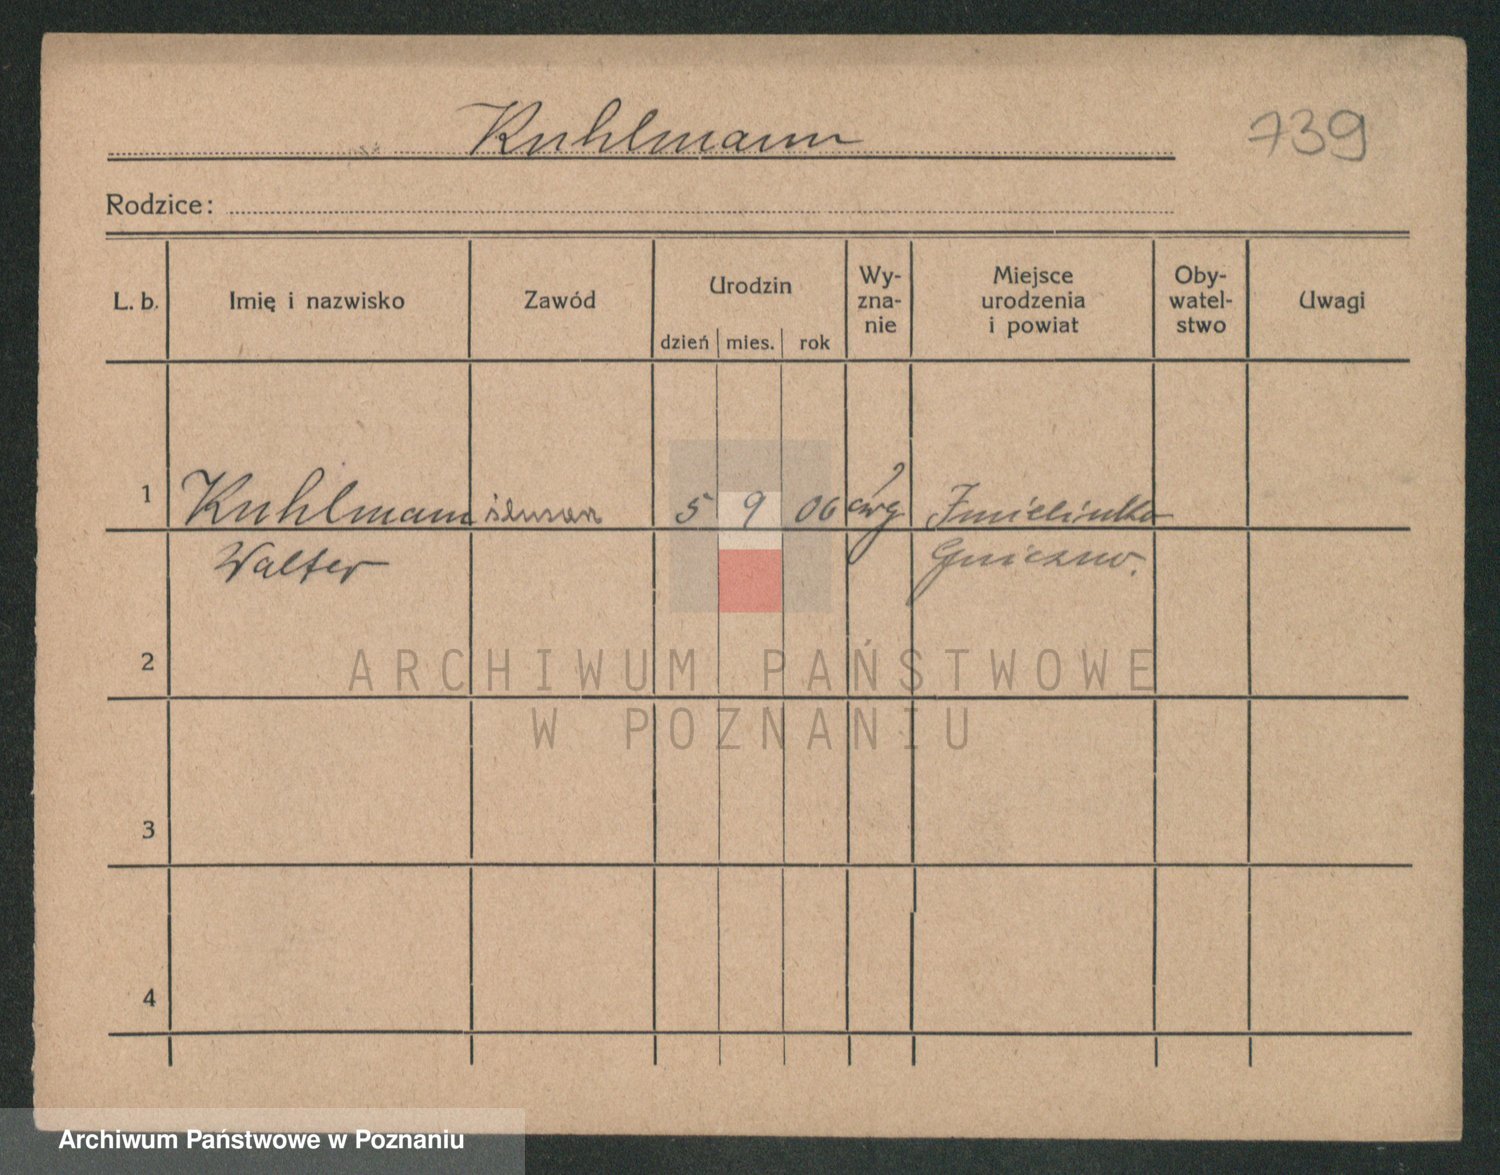 Kuhlmann 739
Rodzice:
L. b. Imię i nazwisko Zawód Urodzin Wy- zna- nie Miejsce urodzenia i powiat Oby- watel- stwo Uwagi
dzień mies. rok
1 Kuhlmann ślusarz 5 9 06 Zmielinko
Walter Gniezno.
2
ARCHIWUM PAŃSTWOWE
W POZNANIU
3
4
Archiwum Państwowe w Poznaniu